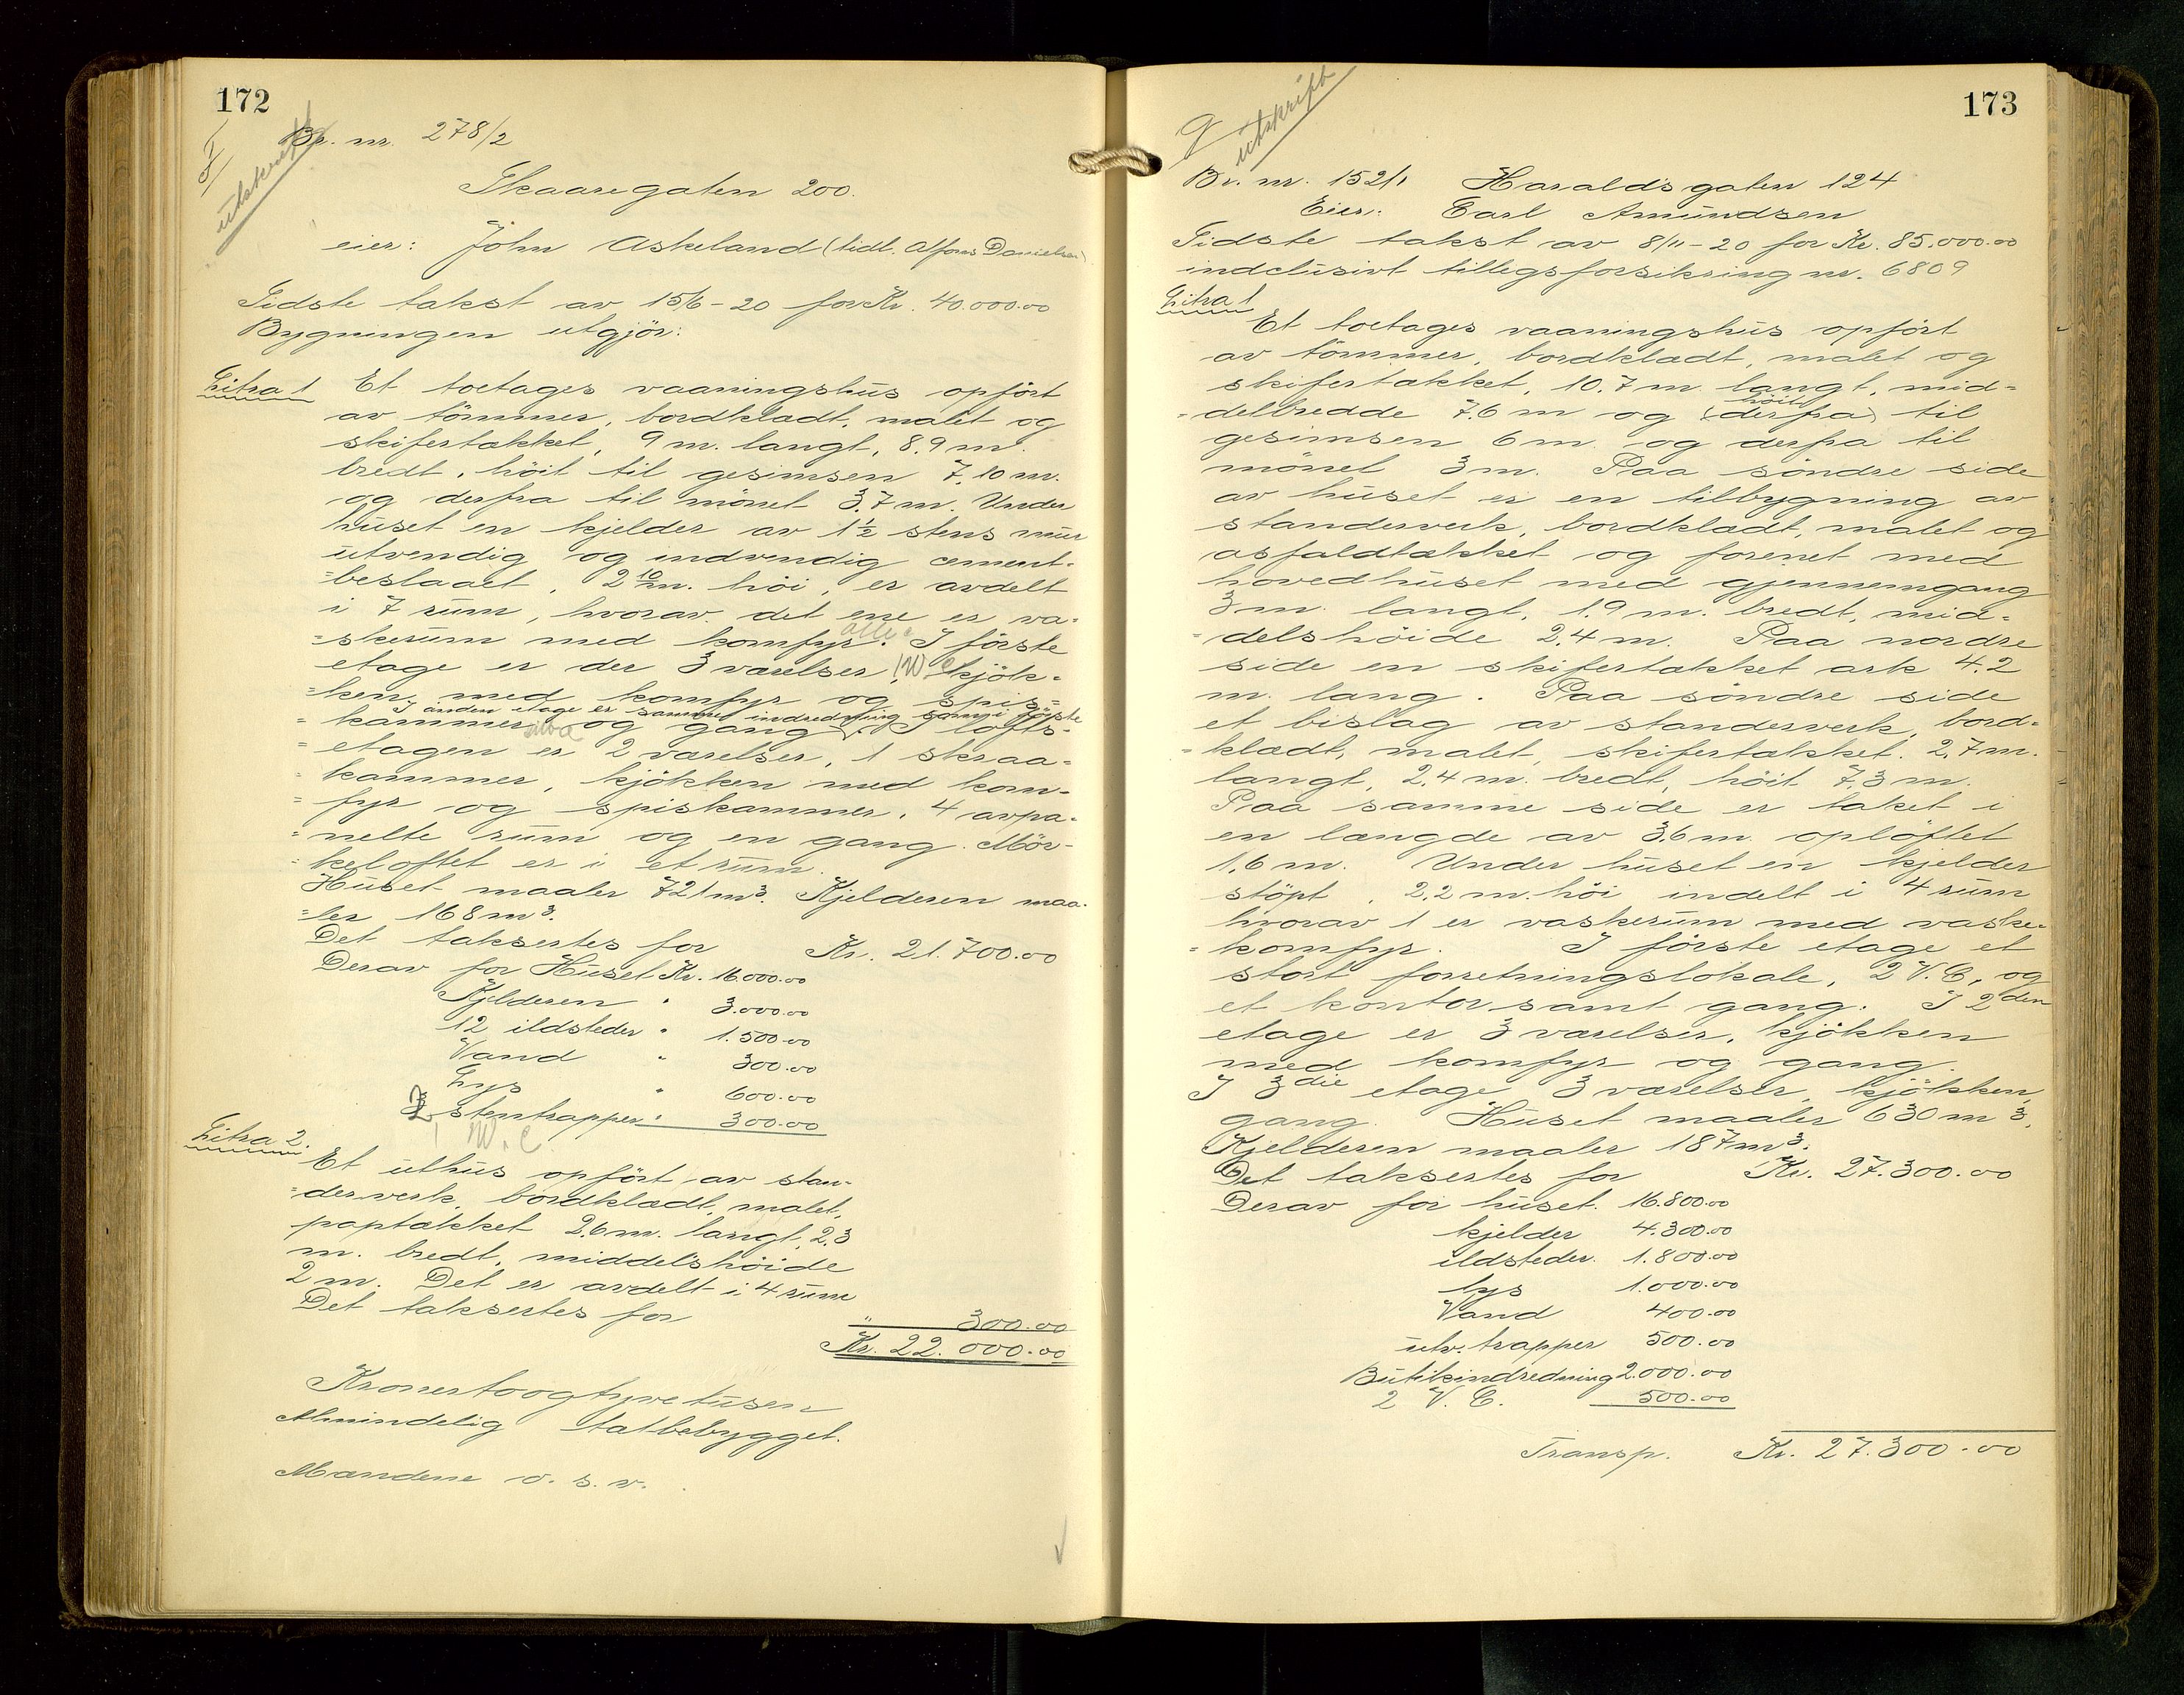 172
utskrift
Br. nr. 278/2
Skaaregaten 200.
eier: John Askeland (tidl. Alfons Danielsen)
Sidste takst av 15/6-20 for Kr. 40.000.00
Bygningen utgjör:
Litra 1 Et toetages vaaningshus opfört
av tömmer, bordklædt, malet og
skifertækket, 9 m. langt, 8.9 m.
bredt, höit til gesimsen 7,10 m.
og derfra til mönet 3.7 m. Under
huset en kjelder av 1½ stens mur
utvendig og indvendig cement-
=beslaaet, 2 10 m. höi, er avdelt
i 7 rum, hvorav det ene er va-
=skerum med komfyr. I förste
etage er der 3 værelser, 1 W C kjök-
=ken med komfyr og spis=
I anden etage er samme indredning som i förste
=kammer og gang. I lofts-
=etagen er 2 værelser, 1 skraa-
=kammer, kjökken med kom-
=fyr og spiskammer, 4 avpa-
=nelte rum og en gang. Mör-
=keloftet er i et rum.
Huset maaler 721 m³. Kjelderen maa-
=ler 168 m³.
Det taksertes for Kr. 21.700.00
Derav for Huset Kr. 16.000.00
Kjelderen " 3.000.00
12 ildsteder " 1.500.00
Vand " 300.00
Lys " 600.00
2 stentrapper " 300.00
1 W.C
Litra 2.
Et uthus opfört av stan-
=derverk, bordklædt, malet,
paptækket 2,6 m. langt, 2,3
m. bredt, middelshöide
2 m. Det er avdelt i 4 rum
Det taksertes for
" 300.00
Kr. 22.000.00
Kronertoogtyvetusen
Almindelig tætbebygget.
Mændene o. s. v.
173
utskrift
Br. nr. 152/1 Haraldsgaten 124
Eier: Carl Amundsen
Sidste takst av 8/11-20 for Kr. 85.000.00
indclusivt tillegsforsikring nr. 6809
Litra 1
Et toetages vaaningshus opfört
av tömmer, bordklædt, malet og
skifertækket, 10.7 m langt, mid=
höit
=delbredde 7.6 m og (derfra) til
gesimsen 6 m. og derfra til
mönet 3 m. Paa söndre side
av huset er en tilbygning av
standerverk, bordklædt, malet og
asfaldtækket og forenet med
hovedhuset med gjennemgang
3 m. langt, 1.9 m. bredt, mid=
=delshöide 2.4 m. Paa nordre
side en skifertækket ark 4.2
m. lang. Paa söndre side
et bislag av standerverk, bord=
=klædt, malet, skifertækket. 2,7 m.
langt, 2,4 m. bredt, höit 7,3 m.
Paa samme side er taket i
en længde av 3,6 m. oplöftet
1,6 m. Under huset en kjelder
stöpt, 2,2 m. höi indelt i 4 rum
hvorav 1 er vaskerum med vaske-
=komfyr. I förste etage et
stort forretningslokale, 2 V.C., og
et kontor samt gang. I 2den
etage er 3 værelser, kjökken
med komfyr og gang.
I 3die etage 3 værelser, kjökken,
gang. Huset maaler 630 m³.
Kjelderen maaler 187 m³.
Det taksertes for Kr. 27.300.00
Derav for huset. 16.800.00
kjelder 4.300.00
ildsteder. 1.800.00
lys 1.000.00
Vand 400.00
utv. trapper 500.00
Butikindredning 2.000.00
2 V. C. 500.00
Transp. Kr. 27.300.00